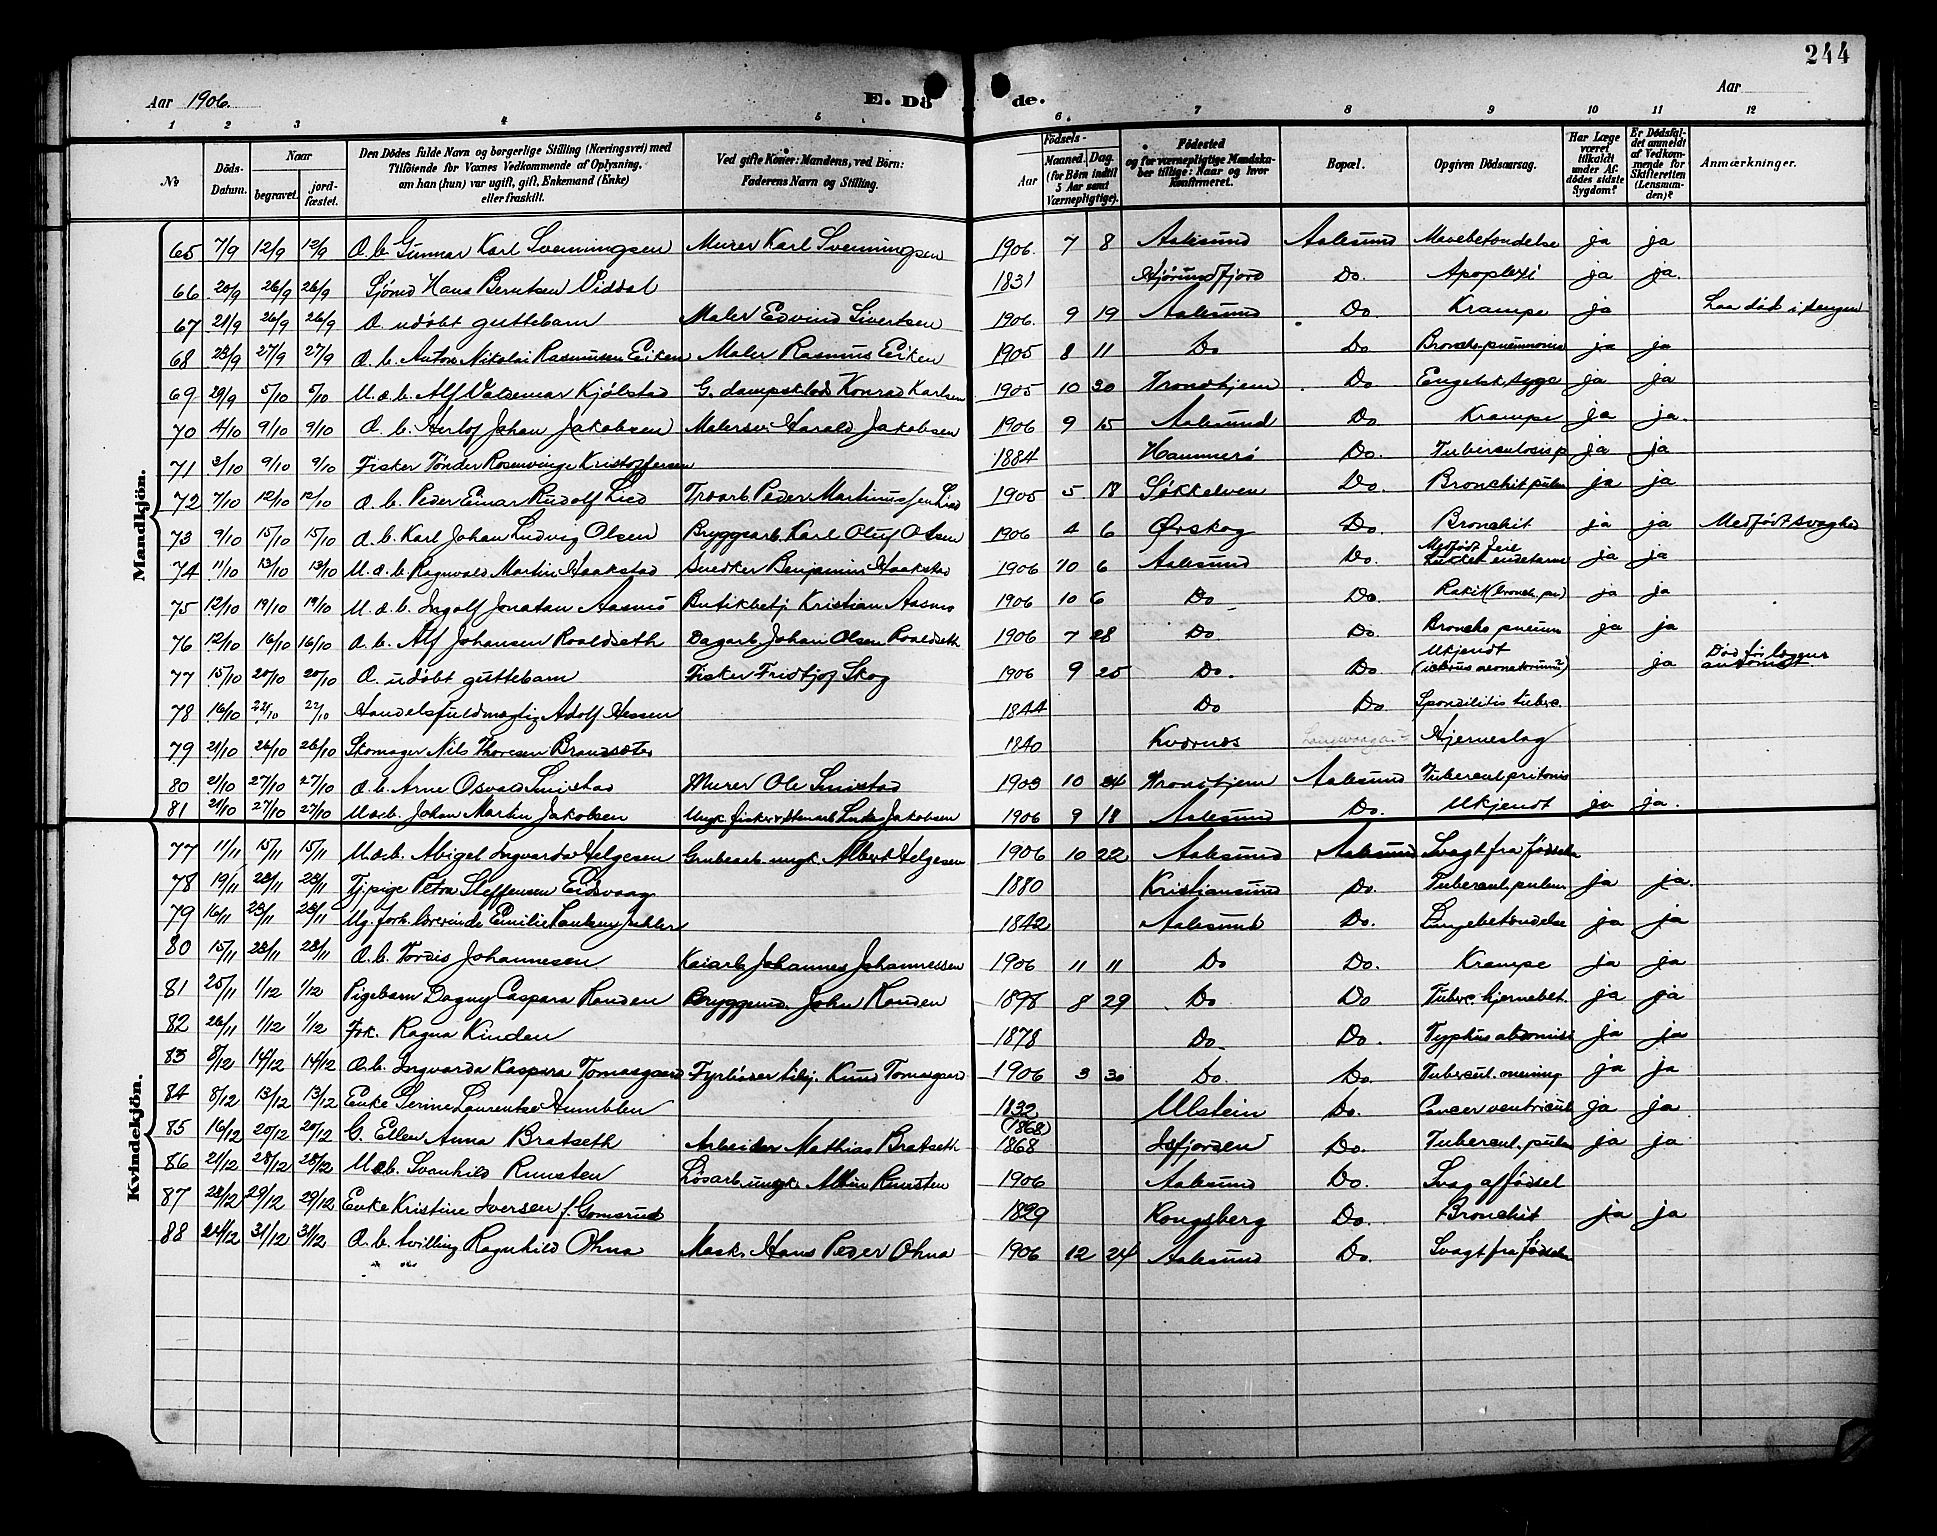 244
Aar 1906.
E. Dö
de.
Aar
1 2 3 4 5 6 7 8 9 10 11 12
№
Döds-Datum.
Naar
begravet.
jord-fæstet.
Den Dödes fulde Navn og borgerlige Stilling (Næringsvei) med Tilföiende for Voxnes Vedkommende af Oplysning, om han (hun) var ugift, gift, Enkemand (Enke) eller fraskilt.
Ved gifte Koner: Mandens, ved Börn: Faderens Navn og Stilling.
Födsels-
Aar
Maaned. Dag.
(for Börn indtil 5 Aar samt Værnepligtige).
Födested og for værnepligtige Mandskaber tillige: Naar og hvor Konfirmeret.
Bopæl.
Opgiven Dödsaarsag.
Har Læge været tilkaldt under Afdödes sidste Sygdom?
Er Dödsfaldet anmeldt af Vedkommende for Skifteretten (Lensmanden)?
Anmærkninger.
Mandkjön.
65 7/9 12/9 12/9 A. b. Gunnar Karl Svenningsen Murer Karl Svenningsen 1906. 7 8 Aalesund Aalesund Mavebetendelse ja ja
66 20/9 26/9 26/9 Sjömd Hans Berntsen Viddal 1831 Hjörundfjord Do. Apoplexi ja ja.
67 21/9 26/9 26/9 A. udöbt guttebarn Maler Edvind Sivertsen 1906. 9 19 Aalesund Do. Krampe ja Laa död i sengen
68 23/9 27/9 27/9 A. b. Anton Nikolai Rasmussen Eiken Maler Rasmus Eiken 1905 8 11 Do Do Broncho pneumonie ja ja
69 29/9 5/10 5/10 U. æ. b. Alf Valdemar Kjölstad G. dampsk.lods Konrad Karlsen 1905 10 30 Trondhjem Do Engelsk syge ja ja
70 4/10 9/10 9/10 A. b. Herlof Johan Jakobsen Malersv. Harald Jakobsen 1906 9 15 Aalesund Do Krampe ja ja.
71 3/10 9/10 9/10 Fisker Tönder Rosenvinge Kristoffersen 1884 Hammerö Do. Tuberculosis p ja ja
72 7/10 12/10 12/10 A. b. Peder Einar Rudolf Lied Troarb. Peder Martinussen Lied 1905 5 18 Søkkelven Do. Bronchit pulm ja ja
73 9/10 15/10 15/10 A. b. Karl Johan Ludvig Olsen Bryggearb. Karl Oluf Olsen 1906 4 6 Ørskog Do. Bronchit ja ja Medfödt svaghed
74 11/10 13/10 13/10 U. æ. b. Ragnvald Martin Haakstad Snedker Benjamin Haakstad 1906 10 6 Aalesund Do. Medfödt feil Lukket endetarm ja ja
75 12/10 19/10 19/10 U. æ. b. Ingolf Jonatan Aasmo Butikbetj. Kristian Aasmo 1906 10 6 Do Do. Rakit (bronch. pn) ja ja
76 12/10 16/10 16/10 A. b. Alf Johansen Roaldseth Dagarb. Johan Olsen Roaldseth 1906 7 28 Do. Do. Broncho pneum ja ja
77 15/10 20/10 20/10 A. udöbt guttebarn Fisker Fridtjof Skog 1906 9 25 Do. Do Ukjendt (icterus neonatorum) ja Död för lægens ankomst
78 16/10 22/10 22/10 Handelsfuldmægtig Adolf Hessen 1844 Do Do. Spondilitis tuberc.
79 21/10 26/10 26/10 Skomager Nils Thoresen Brandsæter 1840 Kværnes Hjerneslag
80 21/10 27/10 27/10 A. b. Arne Osvald Smistad Murer Ole Smistad 1903 10 24 Trondhjem Aalesund Tubercul. pritonis
81 21/10 27/10 27/10 U. æ. b. Johan Martin Jakobsen Ungk. fisker Lukas Jakobsen 1906 9 18 Aalesund Do. Ukjendt ja ja.
Kvindekjön.
77 11/11 15/11 15/11 U. æ. b. Abigel Ingvarda Helgesen Grubearb. ungk. Albert Helgesen 1906 10 22 Aalesund Aalesund Svagt fra födselen
78 19/11 23/11 23/11 Tj.pige Petra Steffensen Eidsvaag 1880 Kristiansund Do. Tubercul. pulm ja ja.
79 16/11 23/11 23/11 Ug. forh. lærerinde Emilie 1842 Aalesund Do. Lungebetendelse ja ja
80 15/11 23/11 23/11 A. b. Tordis Johannesen Kaiarb. Johannes Johannessen 1906 11 11 Do Do. Krampe ja ja
81 25/11 1/12 1/12 Pigebarn Dagny Caspara Randen Bryggemd. John Randen 1898 8 29 Do Do Tuberc. hjernebet. ja ja
82 26/11 1/12 1/12 Frk. Ragna Kinden 1878 Do. Do. Typhus abdomin ja ja
83 8/12 14/12 14/12 A. b. Ingvarda Kaspara Tomasgaard Fyrböder tilsj. Knud Tomasgaard 1906 3 30 Do. Do. Tubercul. mening ja ja
84 8/12 13/12 13/12 Enke Serine Laurentse Humblen 1832 Ulstein Do. Cancer ventricul ja ja.
85 16/12 20/12 20/12 G. Ellen Anna Bratseth Arbeider Mathias Bratseth (1868) 1868 Isfjorden Do. Tubercul. pulm ja ja.
86 21/12 28/12 28/12 U. æ. b. Svanhild Runsten Lösarb. ungk. Albin Runsten 1906 Aalesund Do. Svag af födsel
87 23/12 29/12 29/12 Enke Kristine Iversen f. Gomsrud 1829 Kongsberg Do. Bronchit ja ja
88 24/12 31/12 31/12 A. b. tvilling Ragnhild Ohna Mask. Hans Peder Ohna 1906 12 24 Aalesund Do. Svagt fra födselen